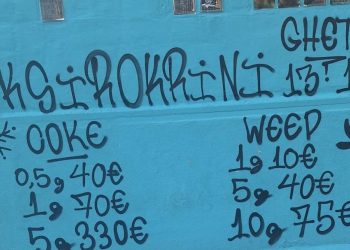 GHET
KSiROKRiNi 13T1
COKE
0,5g 40€
1g 70€
5g 330€
WEED
1g 10€
5g 40€
10g 75€